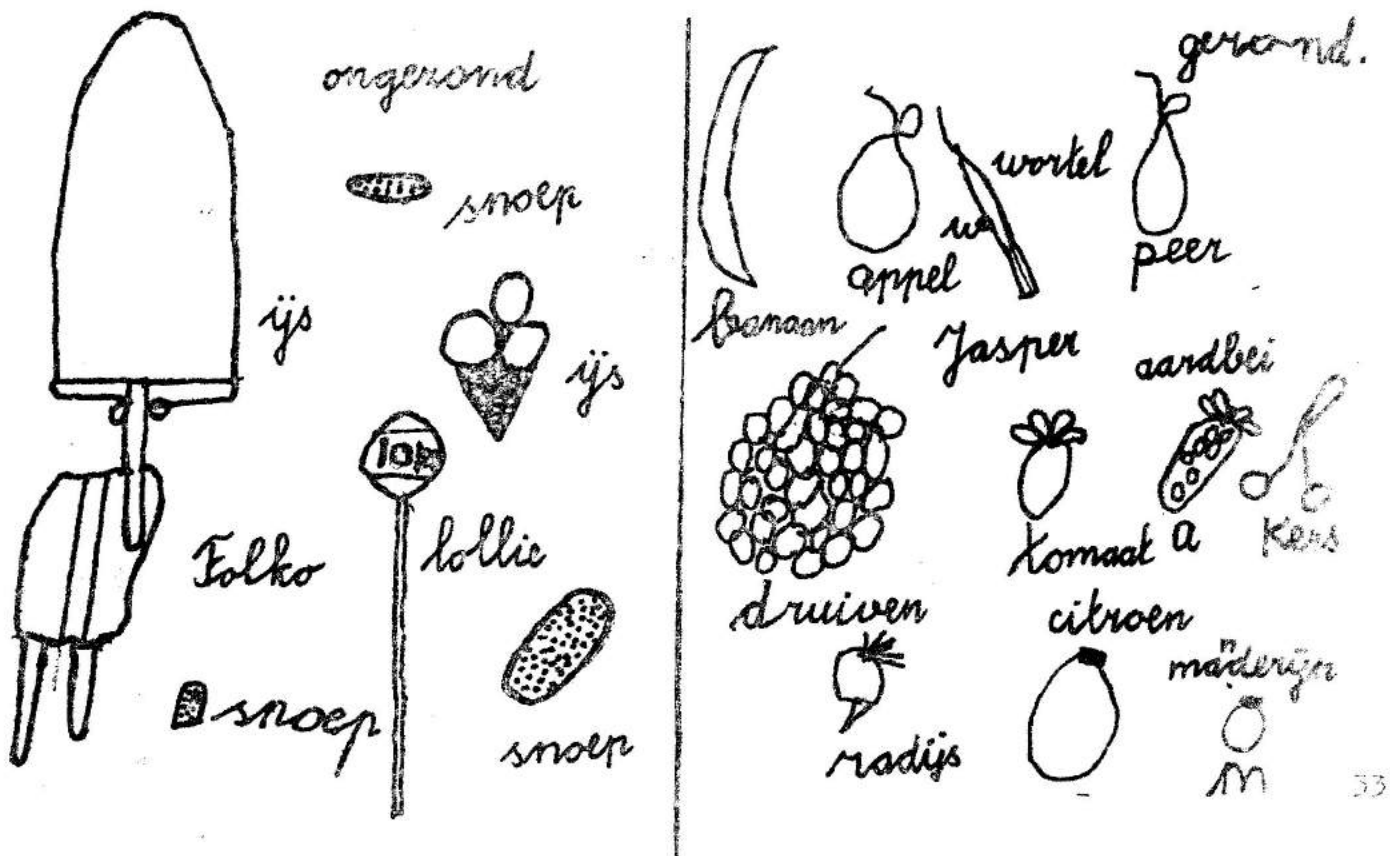 ongezond
snoep
ijs
ijs
lollie
Folko
snoep
snoep
gezond.
wortel
w
appel
peer
banaan
Jasper
aardbei
tomaat
a
kers
druiven
citroen
manderijn
radijs
m
33